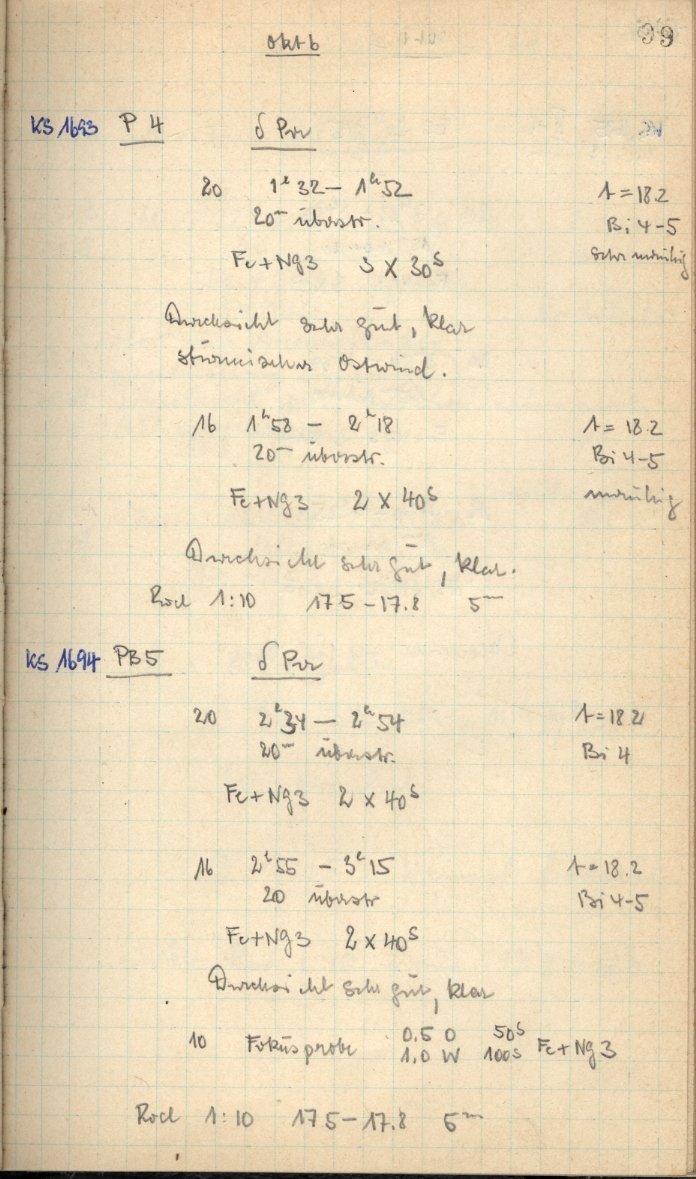 99
Okt 6
KS 1693 P 4 δ Per
20 1ʰ32 – 1ʰ52 t = 18.2
20ᵐ überstr. Bi 4-5
Fe+Ng3 3 × 30ˢ sehr unruhig
Durchsicht sehr gut, klar
stürmischer Ostwind.
16 1ʰ58 – 2ʰ18 t = 18.2
20ᵐ überstr. Bi 4-5
Fe+Ng3 2 × 40ˢ unruhig
Durchsicht sehr gut, klar.
Rod 1:10 17.5 – 17.8 5ᵐ
KS 1694 PB5 δ Per
20 2ʰ34 – 2ʰ54 t = 18.2
20ᵐ überstr. Bi 4
Fe+Ng3 2 × 40ˢ
16 2ʰ55 – 3ʰ15 t = 18.2
20 überstr Bi 4-5
Fe+Ng3 2 × 40ˢ
Durchsicht sehr gut, klar
10 Fokusprobe 0.5 O 50ˢ Fe+Ng3
1.0 W 100s
Rod 1:10 17.5 – 17.8 5ᵐ